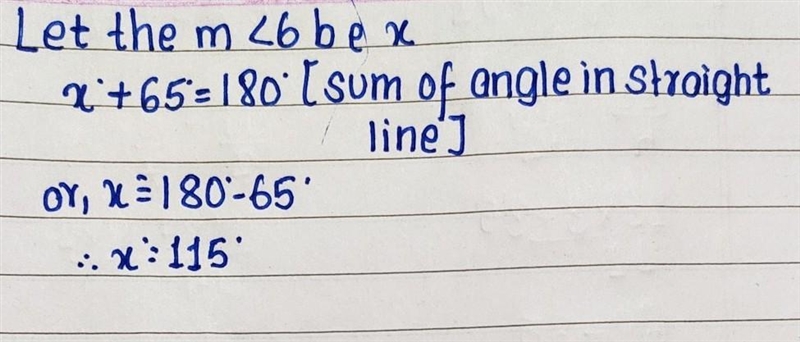 Let the m <6 be x
x° + 65° = 180° [sum of angle in straight
line]
or, x° = 180° - 65°
∴ x° = 115°